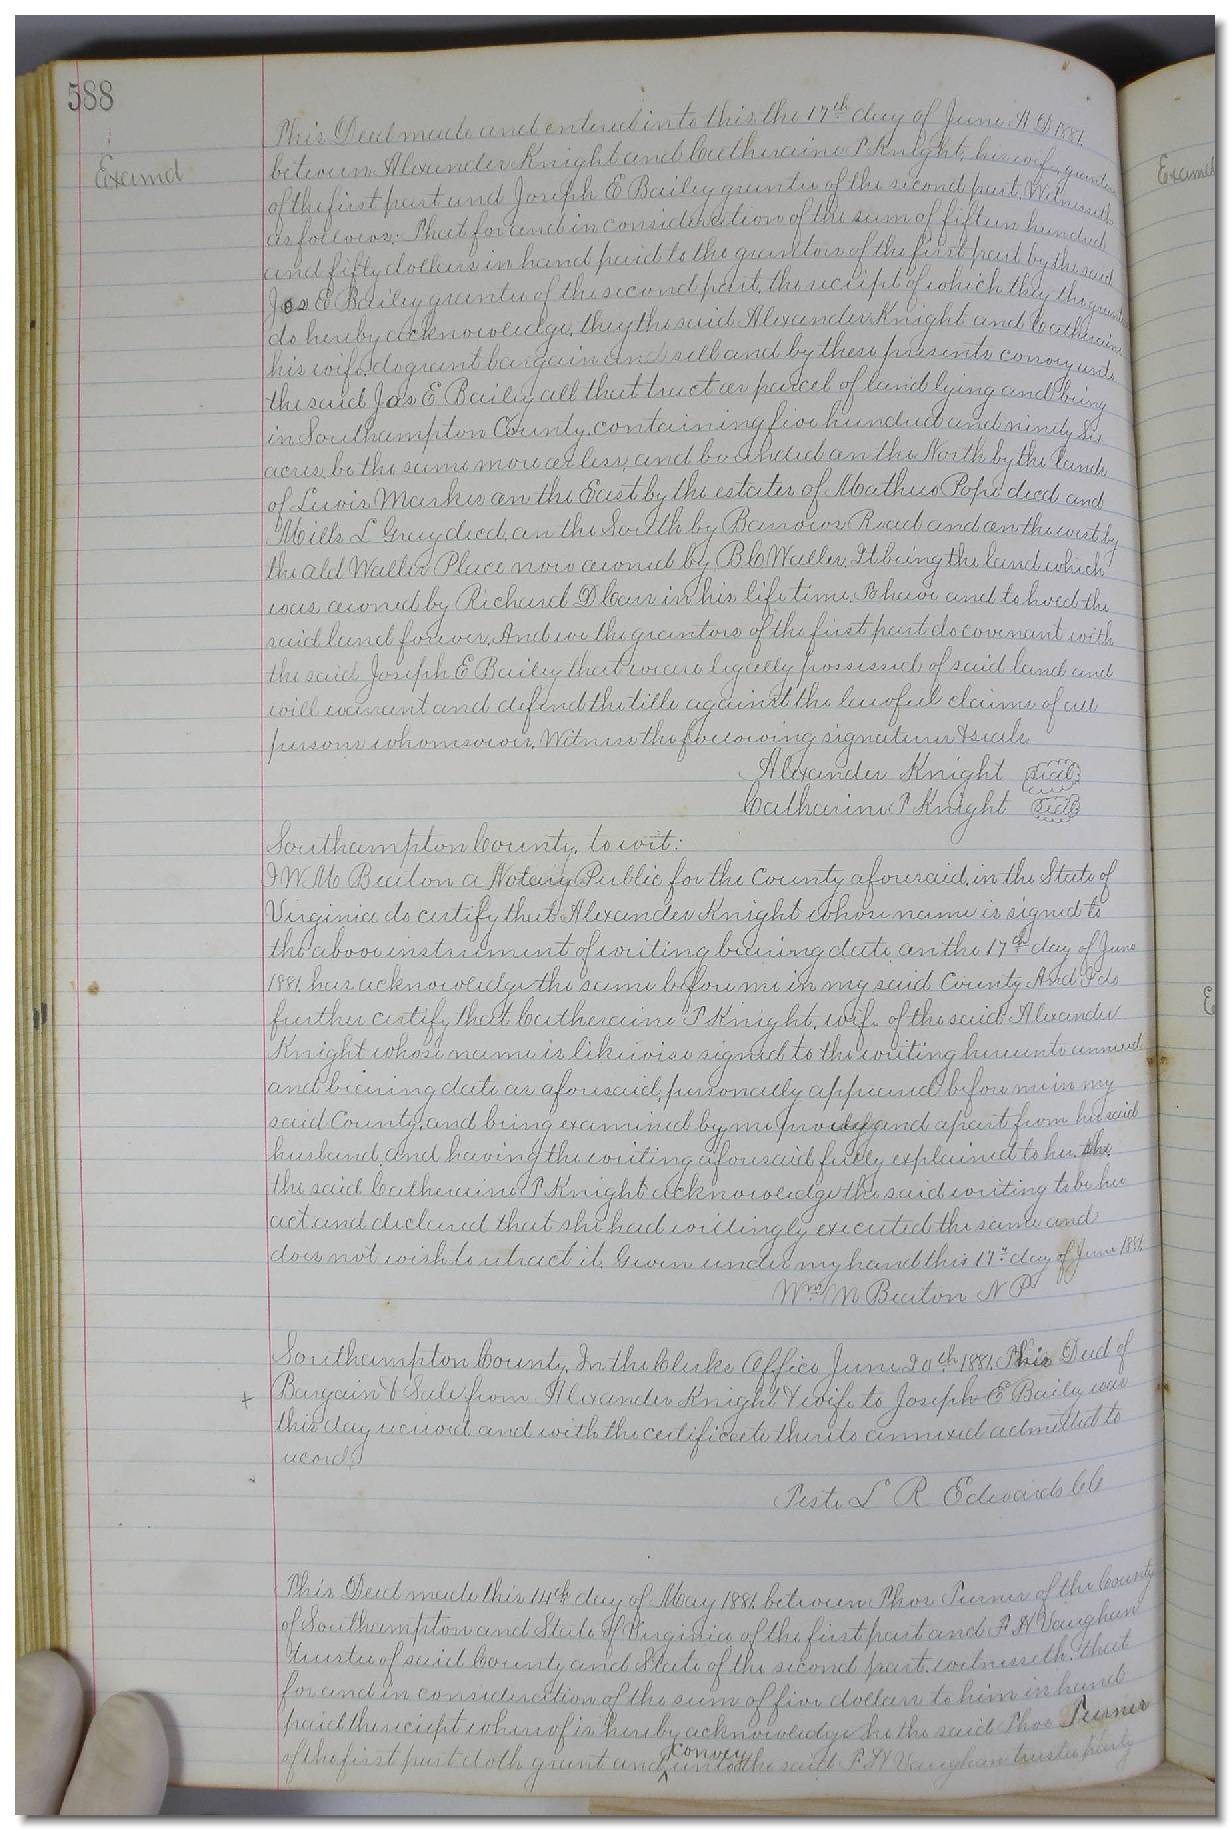 588
Examd
This Deed made and entered into this the 17th day of June A D 1881.
between Alexander Knight and Catheraine P Knight, his wife, grantors
of the first part and Joseph E Bailey grantee of the second part, Witnesseth
as follows: That for and in consideration of the sum of fifteen hundred
and fifty dollars in hand paid to the grantors of the first part by the said
Jos E Bailey grantee of the second part, the receipt of which they the grantors
do hereby acknowledge, they the said Alexander Knight and Catheraine
his wife, do grant bargain and sell and by these presents convey unto
the said Jos E Bailey all that tract or parcel of land lying and being
in Southampton County, containing five hundred and ninety Six
acres, be the same more or less, and bounded on the North by the lands
of Lewis Marks on the East by the estates of Mathew Pope decd and
Mills L Gray decd, on the South by Barrows Road and on the west by
the old Waller Place now owned by B C Waller, It being the land which
was owned by Richard D Carr in his life time. To have and to hold the
said land forever. And we the grantors of the first part do covenant with
the said Joseph E Bailey that we are legally possessed of said land and
will warrant and defend the title against the lawful claims of all
persons whomsoever. Witness the following signatures & seals
Alexander Knight Seal
Catharine P Knight Seal
Southampton County, to wit:
I W. M Beaton a Notary Public for the County aforesaid, in the State of
Virginia do certify that Alexander Knight whose name is signed to
the above instrument of writing bearing date, on the 17th day of June
1881, has acknowledge the same before me in my said County And I do
further certify that Catheraine P Knight, wife of the said Alexander
Knight whose name is likewise signed to the writing hereunto annexed
and bearing date as aforesaid, personally appeared before me in my
said County, and being examined by me privily and apart from her said
husband, and having the writing aforesaid fully explained to her, she
the said Catheraine P Knight acknowledge the said writing to be her
act and declared that she had willingly executed the same and
does not wish to retract it. Given under my hand this 17th day of June 1881.
Wm M Beaton N P
Southampton County, In the Clerks Office June 20th 1881. This Deed of
+ Bargain & Sale from Alexander Knight & wife to Joseph E Baily was
this day received and with the certificate thereto annexed admitted to
record
Teste L R Edwards CC
This Deed made this 14th day of May 1881, between Thos Turner of the County
of Southampton and State of Virginia of the first part and F H Vaughan
trustee of said County and State of the second part, witnesseth: that
for and in consideration of the sum of five dollars to him in hand
paid the reciept whereof is hereby acknowledge he the said Thos Turner
of the first part doth grant and convey unto the said F H Vaughan trustee party
Examd